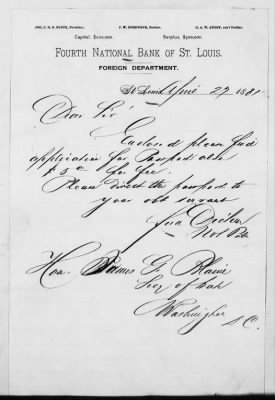 J. W. BIEBINGER, Cashier.
Capital, $500,000. Surplus, $500,000.
FOURTH NATIONAL BANK OF ST. LOUIS.
FOREIGN DEPARTMENT.
St. Louis, June 29 1881
Dear Sir
Enclosed please find
application for Passport also
$5 for fee.
Please direct the passport to
your obt servant
Not Pub
Hon. James G. Blaine
Secy of State
Washington
D.C.